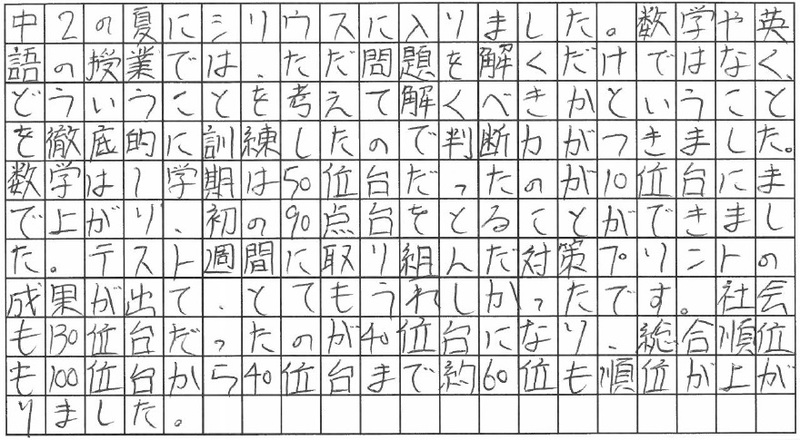 中2の夏にシリウスに入りました。数学や英
語の授業では、ただ問題を解くだけではなく、
どういうことを考えて解くべきかということ
を徹底的に訓練したので判断力がつきました。
数学は1学期は50位台だったのが10位台にま
で上がり、初の90点台をとることができまし
た。テスト週間に取り組んだ対策プリントの
成果が出て、とてもうれしかったです。社会
も130位台だったのが40位台になり、総合順位
も100位台から40位台まで約60位も順位が上が
りました。